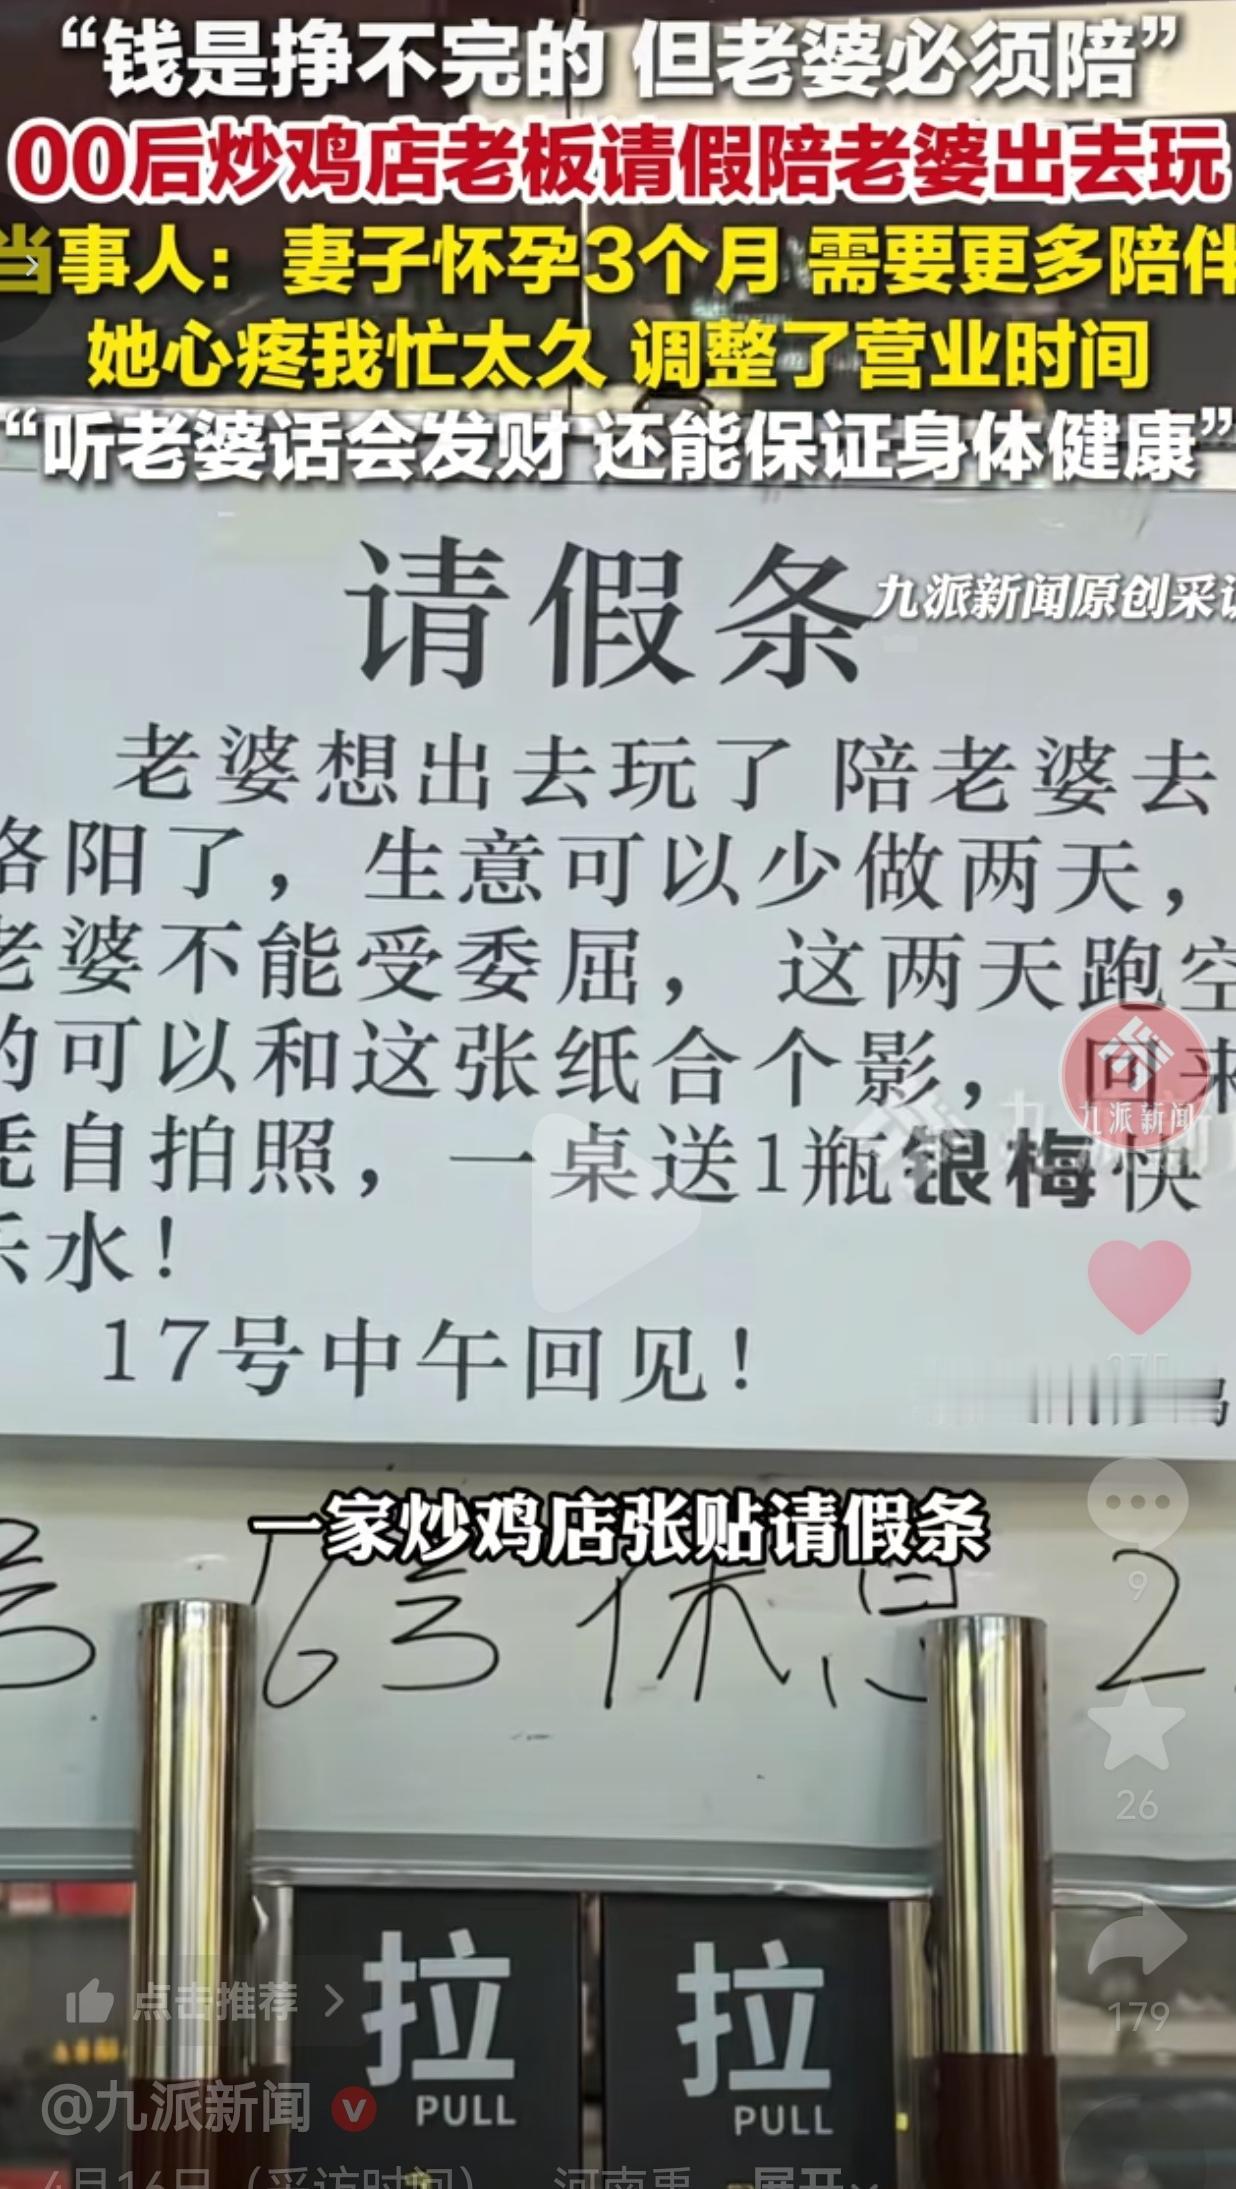 “钱是挣不完的 但老婆必须陪”
00后炒鸡店老板请假陪老婆出去玩
当事人：妻子怀孕3个月 需要更多陪伴
她心疼我忙太久 调整了营业时间
“听老婆话会发财 还能保证身体健康”
请假条
九派新闻原创采访
老婆想出去玩了 陪老婆去
洛阳了，生意可以少做两天，
老婆不能受委屈，这两天跑空
的可以和这张纸合个影，回来
九派新闻
凭自拍照，一桌送1瓶银梅快
乐水！
17号中午回见！
一家炒鸡店张贴请假条
号 16号休息 2
9
26
179
点击推荐
拉 拉
PULL PULL
@九派新闻
4月16日（采访时间），河南禹 展开